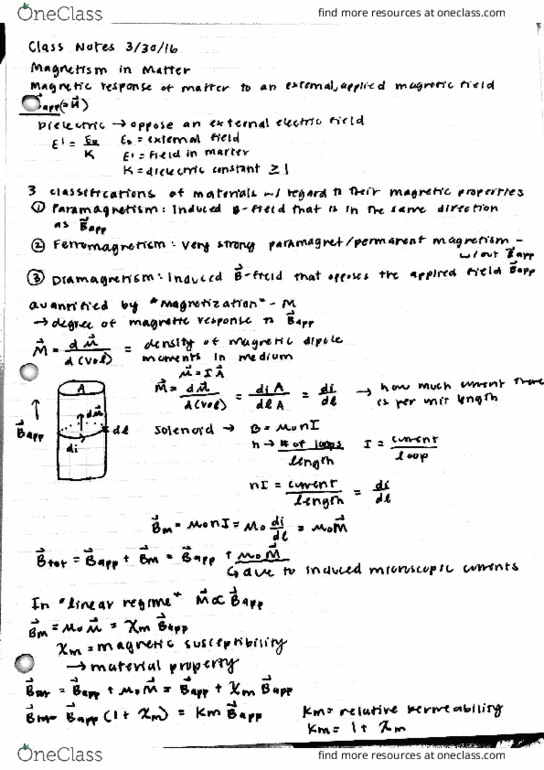 OneClass
find more resources at oneclass.com
Class Notes 3/30/16
Magnetism in Matter
Magnetic response of matter to an external, applied magnetic field
app (= H⃗)
Dielectric → oppose an external electric field
E' = E₀/K E₀ = external field
E' = field in matter
K = dielectric constant ≥ 1
3 classifications of materials w/ regard to their magnetic properties
① Paramagnetism: Induced B-field that is in the same direction
as B⃗app
② Ferromagnetism: very strong paramagnet/permanent magnetism -
w/out B⃗app
③ Diamagnetism: Induced B⃗-field that opposes the applied field B⃗app
Quantified by "Magnetization" - M
→ degree of magnetic response to B⃗app
M⃗ = dμ⃗/d(vol) = density of magnetic dipole
moments in medium
μ⃗ = I A⃗
M⃗ = dμ⃗/d(vol) = di A/dl A = di/dl → how much current there
is per unit length
A
B⃗app ↑ dμ⃗ dl
di
Solenoid → B = μ₀nI
n → # of loops/length I = current/loop
nI = current/length = di/dl
B⃗m = μ₀nI = μ₀ di/dl = μ₀M⃗
B⃗tot = B⃗app + B⃗m = B⃗app + μ₀M⃗
↳ due to induced microscopic currents
In "linear regime" M⃗ ∝ B⃗app
B⃗m = μ₀M⃗ = χm B⃗app
χm = magnetic susceptibility
→ material property
B⃗tot = B⃗app + μ₀M⃗ = B⃗app + χm B⃗app
B⃗tot = B⃗app (1 + χm) = Km B⃗app Km = relative permeability
Km = 1 + χm
OneClass
find more resources at oneclass.com